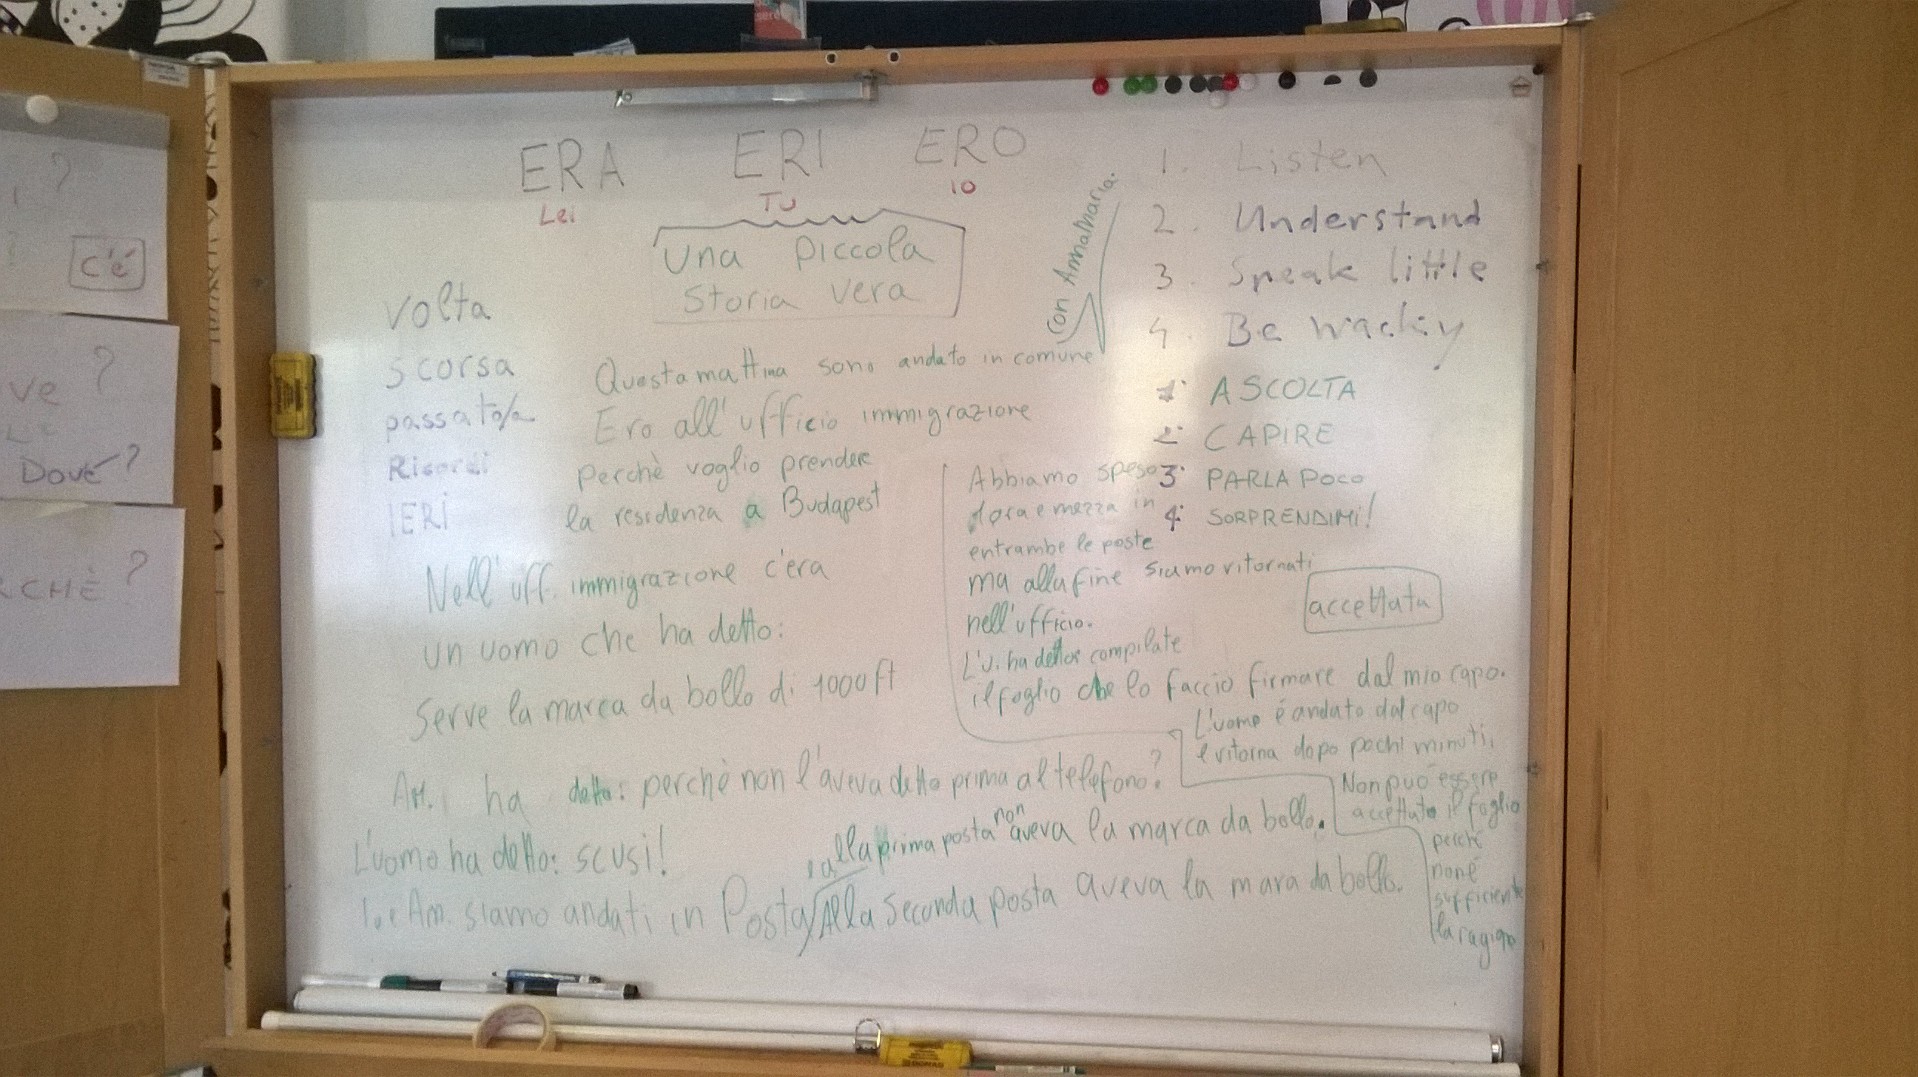 ERA ERI ERO
Lei TU IO
Una piccola
storia vera
volta
scorsa
passato/a
Ricordi
IERI
con Annamaria.
Questa mattina sono andato in comune
Ero all'ufficio immigrazione
perchè voglio prendere
la residenza a Budapest
Nell'uff. immigrazione c'era
un uomo che ha detto:
Serve la marca da bollo di 1000 ft
AM. ha detto: perchè non l'aveva detto prima al telefono?
L'uomo ha detto: scusi!
Io e Am. siamo andati in Posta
alla prima posta non aveva la marca da bollo.
Alla seconda posta aveva la mara da bollo.
Abbiamo speso
ora e mezza in
entrambe le poste
ma alla fine siamo ritornati
nell'ufficio.
L'U. ha detto: compilate
il foglio che lo faccio firmare dal mio capo.
L'uomo è andato dal capo
e ritorna dopo pochi minuti.
Non può essere
accettato il foglio
perchè
non è
sufficiente
la ragione
accettata
1. Listen
2. Understand
3. Speak little
4. Be wacky
1. ASCOLTA
2. CAPIRE
3. PARLA POCO
4. SORPRENDIMI!
?
c'é
ve ?
DOVÉ?
CHÈ?